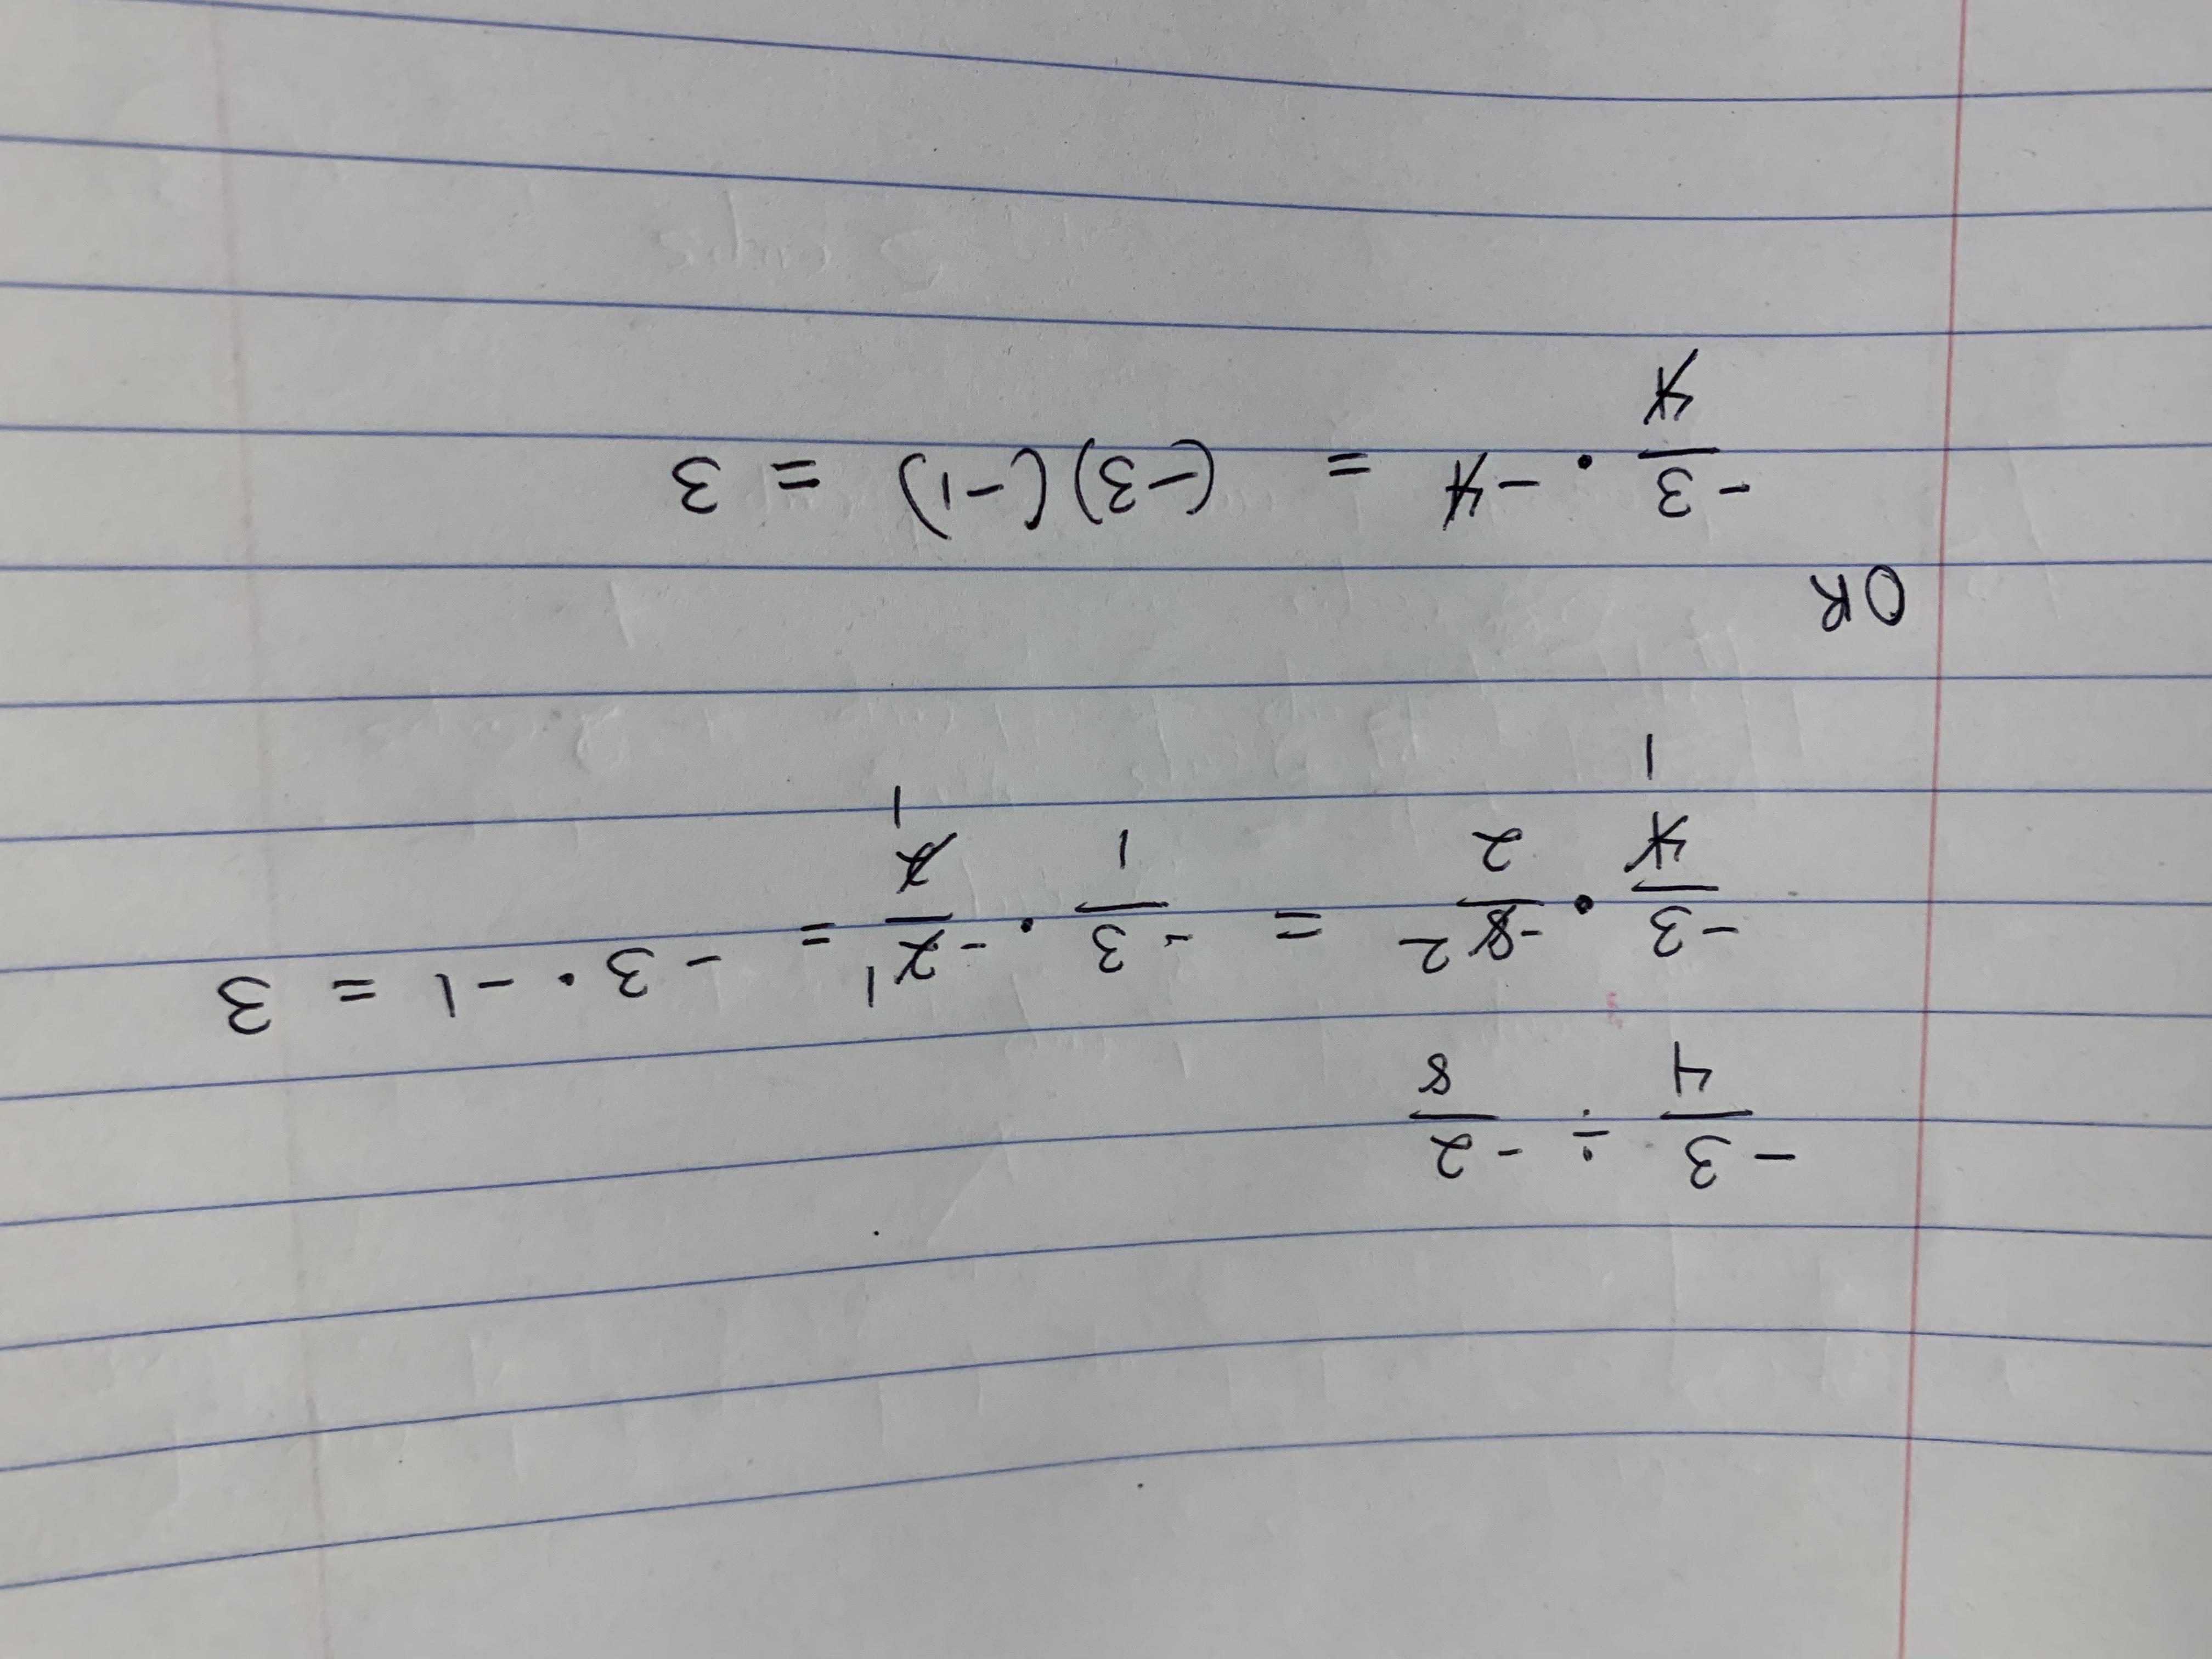 -3/4 ÷ -2/8
-3/4 · -8/2 2 = -3/1 · -2/2 1 = -3 · -1 = 3
1 1
OR
-3/4 · -4 = (-3)(-1) = 3